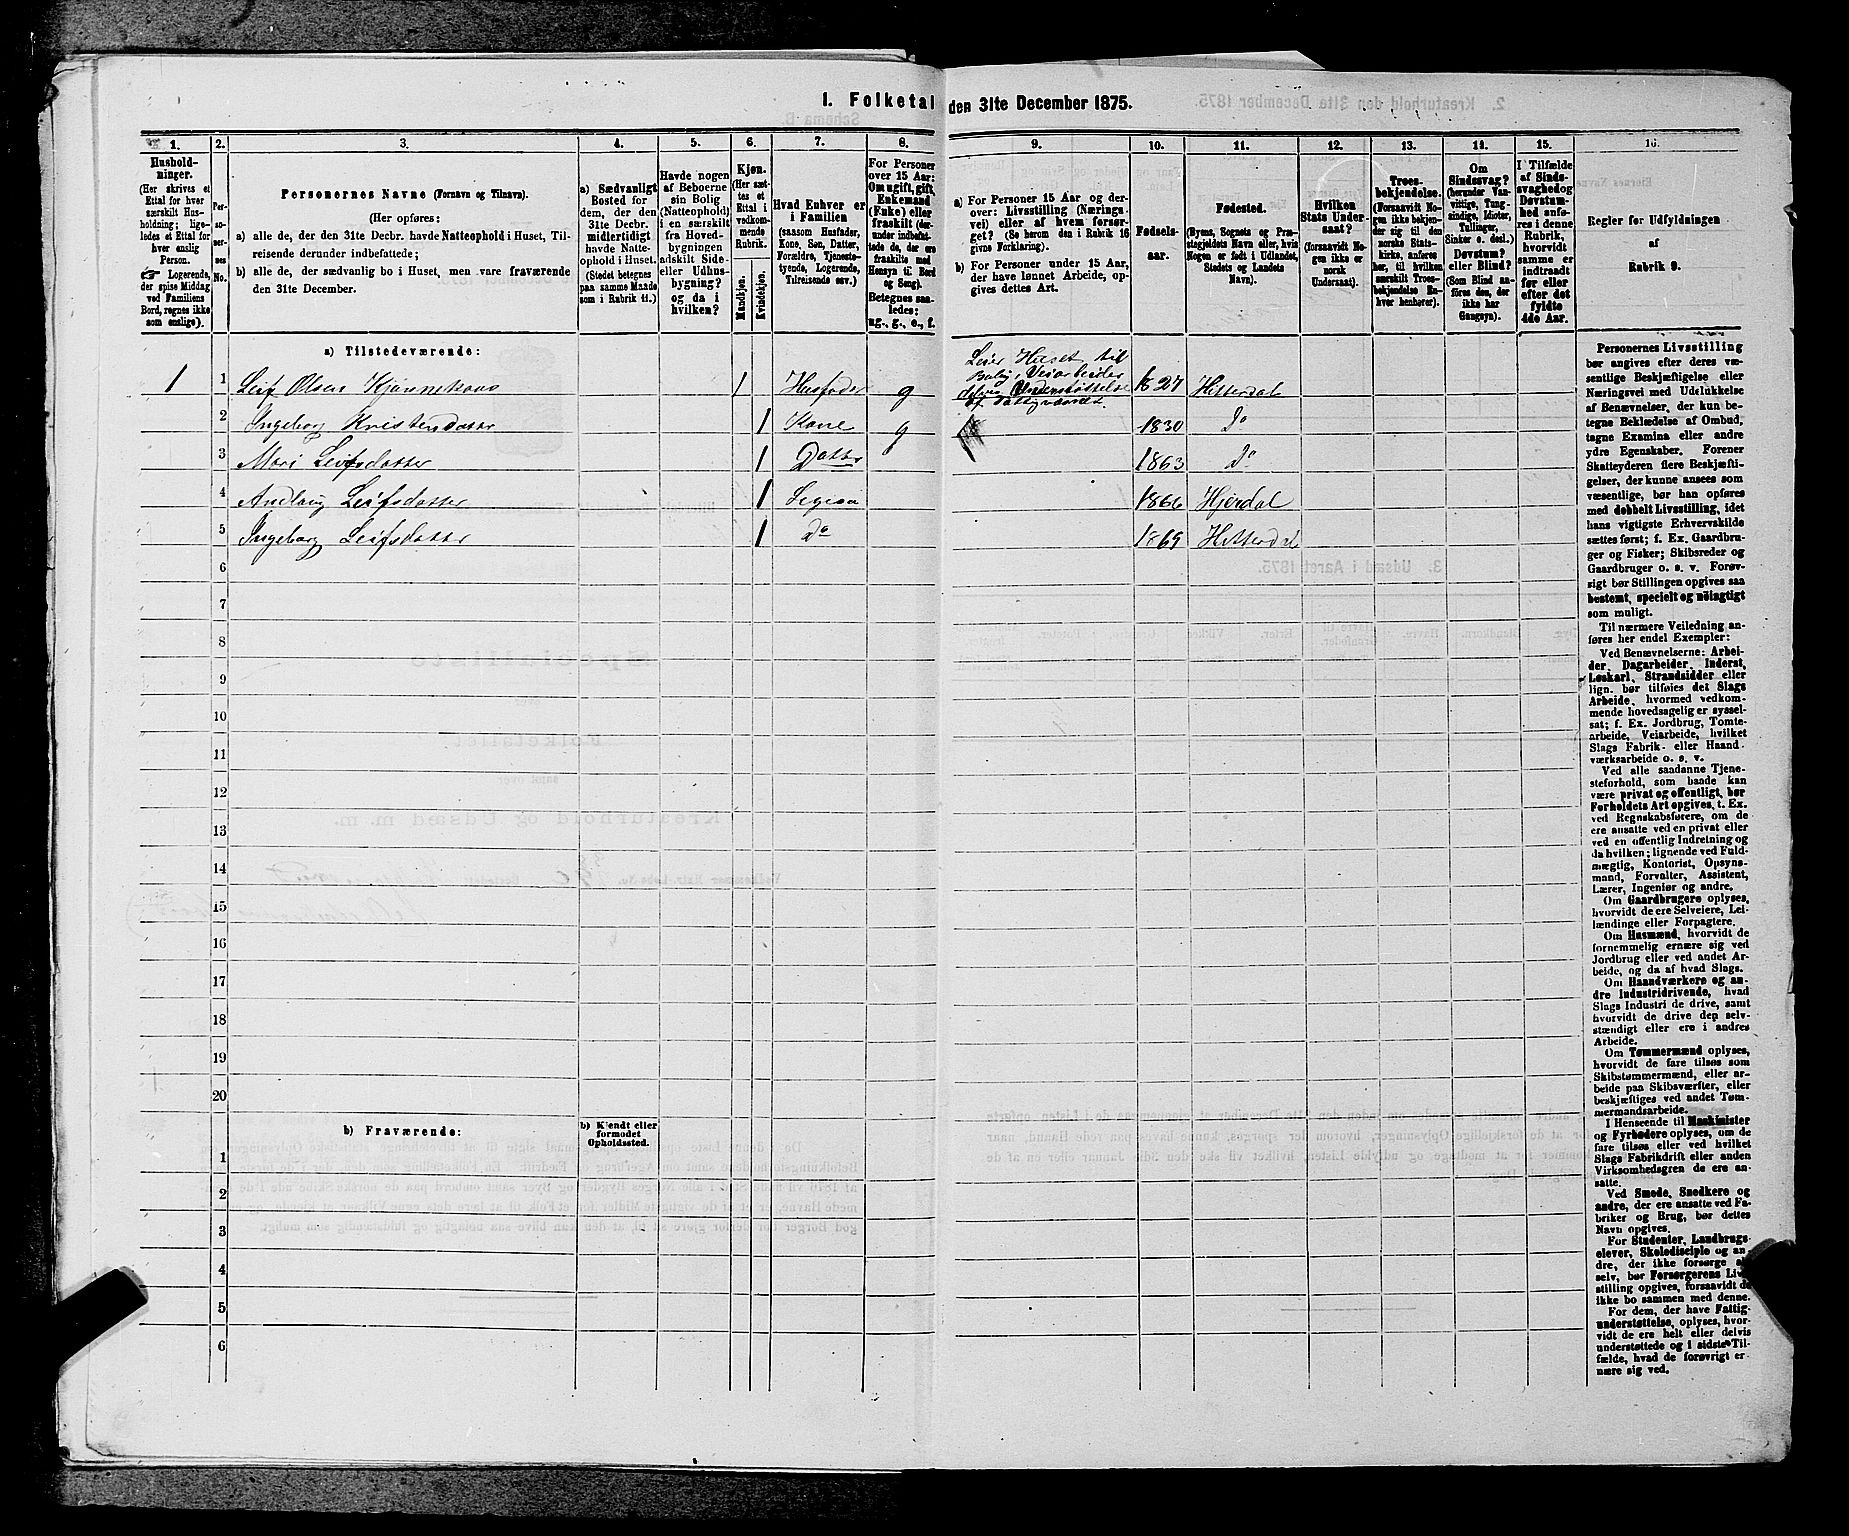 1. Folketal den 31te December 1875.
1. 2. 3. 4. 5. 6. 7. 8. 9. 10. 11. 12. 13. 14. 15. 16.
Hushold-
ninger.
(Her skrives et
Ettal for hver
særskilt Hus-
holdning; lige-
ledes et Ettal for
hver enslig
Person.
☞ Logerende,
der spise Middag
ved Familiens
Bord, regnes ikke
som enslige).
Per-
so-
ner-
nes
No.
Personernes Navne (Fornavn og Tilnavn).
(Her opføres:
a) alle de, der den 31te Decbr. havde Natteophold i Huset, Til-
reisende derunder indbefattede;
b) alle de, der sædvanlig bo i Huset, men vare fraværende
den 31te December.
a) Sædvanligt
Bosted for
dem, der den
31te Decbr.
midlertidigt
havde Natte-
ophold i Huset.
(Stedet betegnes
paa samme Maade
som i Rubrik 11.)
Havde nogen
af Beboerne
sin Bolig
(Natteophold)
i en særskilt
fra Hoved-
bygningen
adskilt Side-
eller Udhus-
bygning?
og da i
hvilken?
Kjøn.
(Her sæt-
tes et
Ettal i
vedkom-
mende
Rubrik.
Mandkjøn.
Kvindekjøn.
Hvad Enhver er
i Familien
(saasom Husfader,
Kone, Søn, Datter,
Forældre, Tjeneste-
tyende, Logerende,
Tilreisende osv.)
For Personer
over 15 Aar:
Om ugift, gift,
Enkemand
(Enke) eller
fraskilt (der-
under indbefat-
tede de, der ere
fraskilte med
Hensyn til Bord
og Seng).
Betegnes saa-
ledes:
ug., g., e., f.
a) For Personer 15 Aar og der-
over: Livsstilling (Nærings-
vei) eller af hvem forsør-
get? (Se herom den i Rubrik 16
givne Forklaring).
b) For Personer under 15 Aar,
der have lønnet Arbeide, op-
gives dettes Art.
Fødsels-
aar.
Fødested.
(Byens, Sognets og Præ-
stegjeldets Navn eller, hvis
Nogen er født i Udlandet,
Stedets og Landets
Navn).
Hvilken
Stats Under-
saat?
(forsaavidt No-
gen ikke er
norsk
Undersaat).
Troes-
bekjendelse.
(Forsaavidt No-
gen ikke bekjen-
der sig til den
norske Stats-
kirke, anføres
her, til hvilken
særskilt Troes-
bekjendelse En-
hver henhører).
Om
Sindssvag?
(herunder Van-
vittige, Tung-
sindige, Idioter,
Tullinger,
Sinker o. desl.)
Døvstum?
eller Blind?
(Som Blind an-
føres den, der
ikke har
Gangsyn).
I Tilfælde
af Sinds-
svaghed og
Døvstum-
hed anfø-
res i denne
Rubrik,
hvorvidt
samme er
indtraadt
før eller
efter det
fyldte
4de Aar.
Regler for Udfyldningen
af
Rubrik 9.
a) Tilstedeværende:
Leier Huset til
Bolig, Veiarbeider
delvis Understøttelse
af Fattigvæsenet.
1 1 Leif Olsen 1 Husfader g 1827 Hitterdal
2 Ingeborg Kristendatter 1 Kone g 1830 Do
3 Mari Leifsdatter 1 Datter 1863 Do
4 Andlaug Leifsdatter 1 Ligesaa 1866 Hjerdal
5 Ingeborg Leifsdatter 1 Do 1869 Hitterdal
6
7
8
9
10
11
12
13
14
15
16
17
18
19
20
b) Fraværende:
b) Kjendt eller
formodet
Opholdssted.
1
2
3
4
5
6
Personernes Livsstilling
bør angives efter deres væ-
sentlige Beskjæftigelse eller
Næringsvei med Udelukkelse
af Benævnelser, der kun be-
tegne Beklædelse af Ombud,
tagne Examina eller andre
ydre Egenskaber. Forener
Skatteyderen flere Beskjæfti-
gelser, der kunne ansees som
væsentlige, bør han opføres
med dobbelt Livsstilling, idet
hans vigtigste Erhvervskilde
sættes først; f. Ex. Gaardbru-
ger og Fisker; Skibsreder og
Gaardbruger o. s. v. Forøv-
rigt bør Stillingen opgives saa
bestemt, specielt og nöiagtigt
som muligt.
Til nærmere Veiledning an-
føres her endel Exempler:
Ved Benævnelserne: Arbei-
der, Dagarbeider, Inderst,
Løskarl, Strandsidder eller
lign. bør tilføies det Slags
Arbeide, hvormed vedkom-
mende hovedsagelig er syssel-
sat; f. Ex. Jordbrug, Tomte-
arbeide, Veiarbeide, hvilket
Slags Fabrik- eller Haand-
værksarbeide o. s. v.
Ved alle saadanne Tjene-
steforhold, som baade kan
være privat og offentligt, bør
Forholdets Art opgives, t. Ex.
ved Regnskabsførere, om de
ere ansatte ved en privat eller
ved en offentlig Indretning og
da hvilken; lignende ved Fuld-
mægtig, Kontorist, Opsyns-
mand, Forvalter, Assistent,
Lærer, Ingeniør og andre.
Om Gaardbrugere oplyses,
hvorvidt de ere Selveiere, Lei-
lændinge eller Forpagtere.
Om Husmænd, hvorvidt de
fornemmelig ernære sig ved
Jordbrug eller ved andet Ar-
beide, og da af hvad Slags.
Om Haandværkere og an-
dre Industridrivende, hvad
Slags Industri de drive, samt
hvorvidt de drive den selv-
stændigt eller ere i andres
Arbeide.
Om Tømmermænd oplyses,
hvorvidt de fare tilsøs som
Skibstømmermænd, eller ar-
beide paa Skibsværfter, eller
beskjæftiges ved andet Tøm-
mermandsarbeide.
I Henseende til Maskinister
og Fyrbødere oplyses, om de
fare tilsøs eller ved hvilket
Slags Fabrikdrift eller anden
Virksomhedsgren de ere an-
satte.
Ved Smede, Snedkere og
andre, der ere ansatte ved Fa-
briker og Brug, bør dettes
Navn opgives.
For Studenter, Landbrugs-
elever, Skoledisciple og an-
dre, der ikke forsørge
selv, bør Forsørgerens Liv-
stilling opgives, forsaavidt de
ikke bo sammen med denne.
For dem, der have Fattig-
understøttelse, oplyses, hvor-
vidt de ere helt eller delvis
understøttede og i sidste Til-
fælde, hvad de forøvrigt er-
nære sig ved.